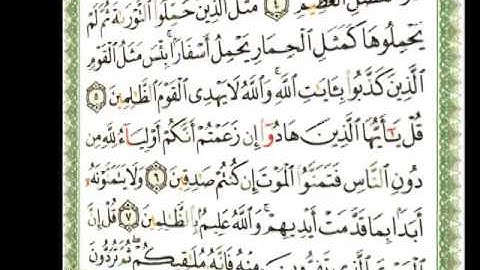 الْفَضْلِ الْعَظِيمِ ٤ مَثَلُ الَّذِينَ حُمِّلُوا التَّوْرَىٰةَ ثُمَّ لَمْ
يَحْمِلُوهَا كَمَثَلِ الْحِمَارِ يَحْمِلُ أَسْفَارًا ۚ بِئْسَ مَثَلُ الْقَوْمِ
الَّذِينَ كَذَّبُوا بِـَٔايَٰتِ اللَّهِ ۚ وَاللَّهُ لَا يَهْدِى الْقَوْمَ الظَّٰلِمِينَ ٥
قُلْ يَٰٓأَيُّهَا الَّذِينَ هَادُوٓا إِن زَعَمْتُمْ أَنَّكُمْ أَوْلِيَآءُ لِلَّهِ مِن
دُونِ النَّاسِ فَتَمَنَّوُا الْمَوْتَ إِن كُنتُمْ صَٰدِقِينَ ٦ وَلَا يَتَمَنَّوْنَهُۥٓ
أَبَدًۢا بِمَا قَدَّمَتْ أَيْدِيهِمْ ۚ وَاللَّهُ عَلِيمٌۢ بِالظَّٰلِمِينَ ٧ قُلْ إِنَّ
الْمَوْتَ الَّذِى تَفِرُّونَ مِنْهُ فَإِنَّهُۥ مُلَٰقِيكُمْ ۖ ثُمَّ تُرَدُّونَ